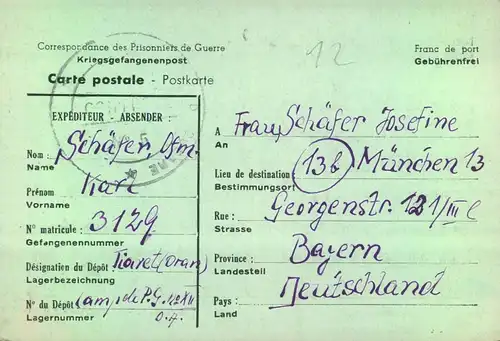 Correspondance des Prisonniers de Guerre
Kriegsgefangenenpost
Carte postale - Postkarte
12
Franc de port
Gebührenfrei
EXPÉDITEUR - ABSENDER :
Nom : Schäfer, Ofm.
Name
Prénom Karl
Vorname
N° matricule : 3129
Gefangenennummer
Désignation du Dépôt Tiaret (Oran)
Lagerbezeichnung
N° du Dépôt Camp de P.G. N° XII
Lagernummer O.A.
A Frau Schäfer Josefine
An
Lieu de destination 13b München 13
Bestimmungsort
Rue : Georgenstr. 121/III l
Strasse
Province : Bayern
Landesteil
Pays : Deutschland
Land